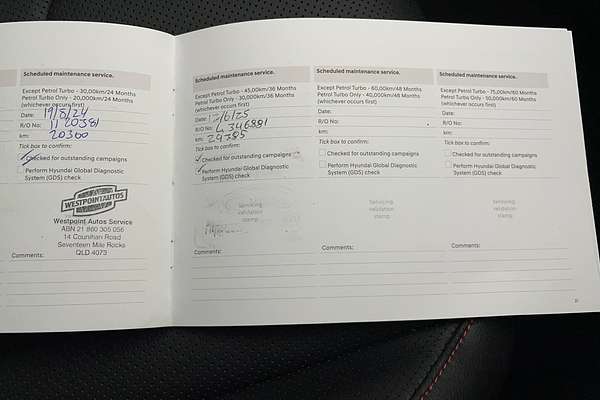 Scheduled maintenance service.
Except Petrol Turbo - 30,00km/24 Months
Petrol Turbo Only - 20,000km/24 Months
(whichever occurs first)
Date: 19/8/24
R/O No: 1120381
km: 20300
Tick box to confirm:
Checked for outstanding campaigns
Perform Hyundai Global Diagnostic
System (GDS) check
WESTPOINTAUTOS
Westpoint Autos Service
ABN 21 860 305 056
14 Counihan Road
Seventeen Mile Rocks
QLD 4073
Comments:
Scheduled maintenance service.
Except Petrol Turbo - 45,00km/36 Months
Petrol Turbo Only - 30,00km/36 Months
(whichever occurs first)
Date: /6/25
R/O No:
km: 29385
Tick box to confirm:
Checked for outstanding campaigns
Perform Hyundai Global Diagnostic
System (GDS) check
Servicing
validation
stamp
Comments:
Scheduled maintenance service.
Except Petrol Turbo - 60,00km/48 Months
Petrol Turbo Only - 40,00km/48 Months
(whichever occurs first)
Date:
R/O No:
km:
Tick box to confirm:
Checked for outstanding campaigns
Perform Hyundai Global Diagnostic
System (GDS) check
Servicing
validation
stamp
Comments:
Scheduled maintenance service.
Except Petrol Turbo - 75,00km/60 Months
Petrol Turbo Only - 50,00km/60 Months
(whichever occurs first)
Date:
R/O No:
km:
Tick box to confirm:
Checked for outstanding campaigns
Perform Hyundai Global Diagnostic
System (GDS) check
Servicing
validation
stamp
Comments: